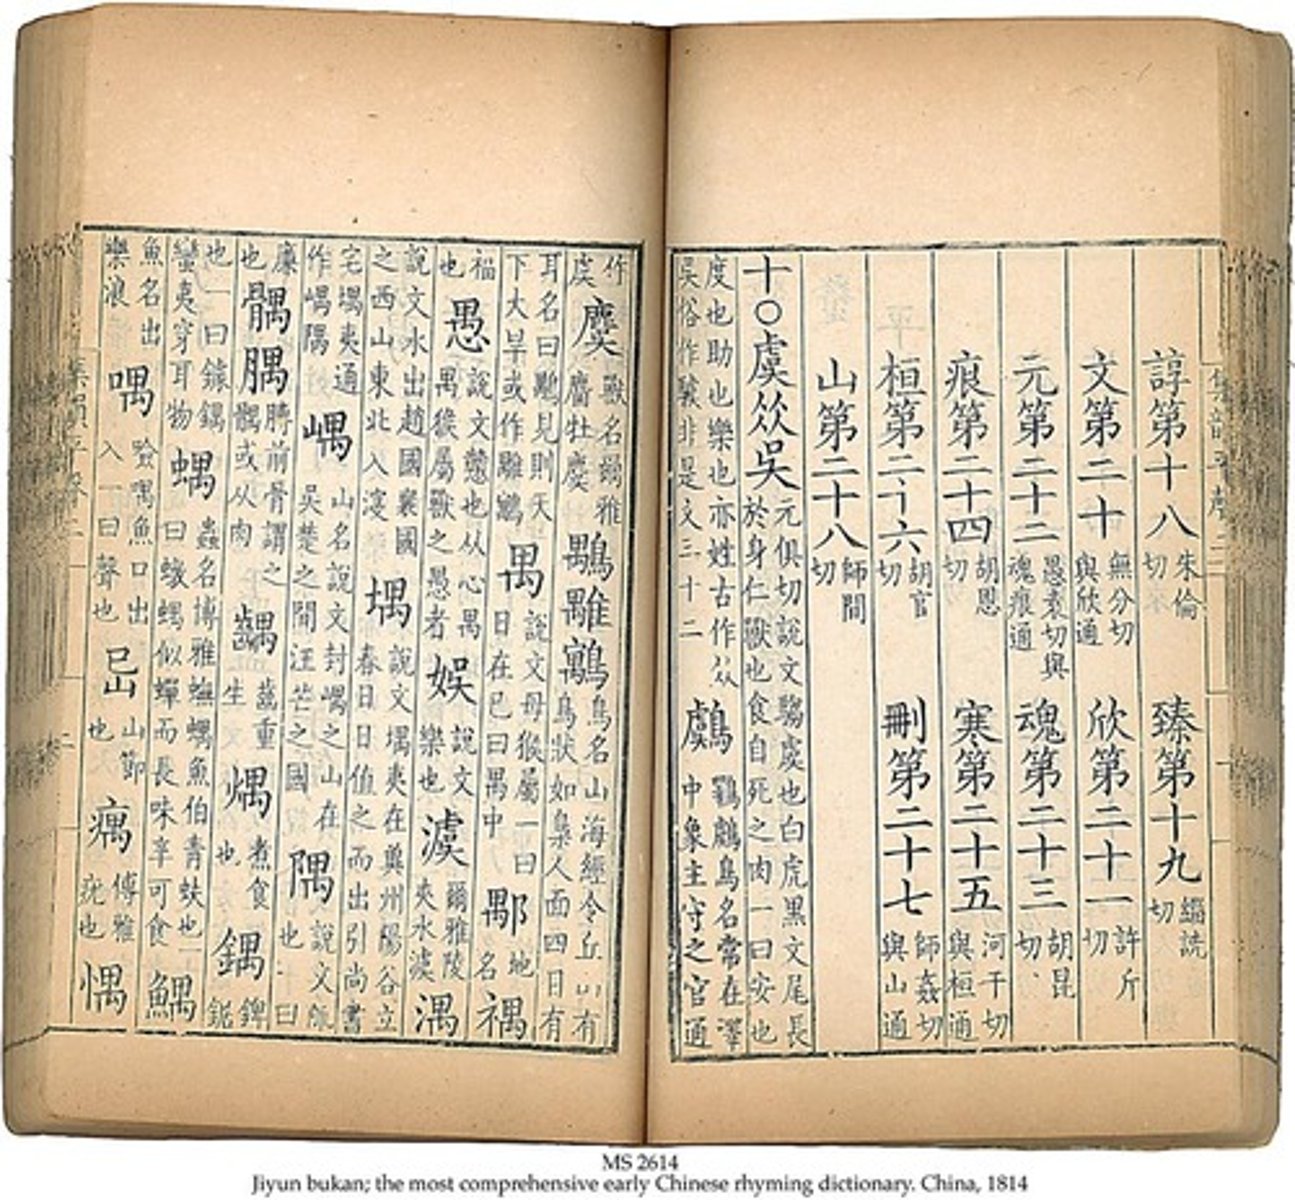 諄第十八 朱倫切 臻第十九 緇詵切
文第二十 無分切與欣通 欣第二十一 許斤切
元第二十二 愚袁切與魂痕通 魂第二十三 胡昆切
痕第二十四 胡恩切 寒第二十五 河干切與桓通
桓第二十六 胡官切 刪第二十七 師姦切與山通
山第二十八 師間切
十〇虞 吳 元俱切說文騶虞也白虎黑文尾長於身仁獸也食自死之肉一曰安也
度也助也樂也亦姓古作 吳俗作 非是文三十二 鸆 鸅鸆鳥名常在澤中象主守之官通
作虞 麌 獸名爾雅麕牡麌 鳥名山海經令丘山有鳥狀如梟人面四目有
耳名曰 見則天下大旱或作 禺 說文母猴屬一曰日在巳曰禺中 鄅 地名 禑
福也 愚 說文戇也从心禺禺猴屬獸之愚者 娛 說文樂也 澞 爾雅陵夾水澞 湡
說文水出趙國襄國之西山東北入寖 堣 說文堣夷在冀州陽谷立春日日值之而出引尚書
宅堣夷通作嵎隅 嵎 山名說文封嵎之山在吳楚之間汪芒之國 隅 說文陬也一曰
廉也 髃腢 膊前骨謂之髃或从肉 齵 齒重生 㷒 煮食也 鍝 錍鈪
也一曰鐻鍝蠻夷穿耳物 蝺 蟲名博雅 魚伯青蚨也一曰蠍蝺似蟬而長味辛可食 鰅
魚名出樂浪 喁 噞喁魚口出入一曰聲也 山節也 㾄 博雅疣也 惆
集韻平聲二
MS 2614
Jiyun bukan; the most comprehensive early Chinese rhyming dictionary. China, 1814